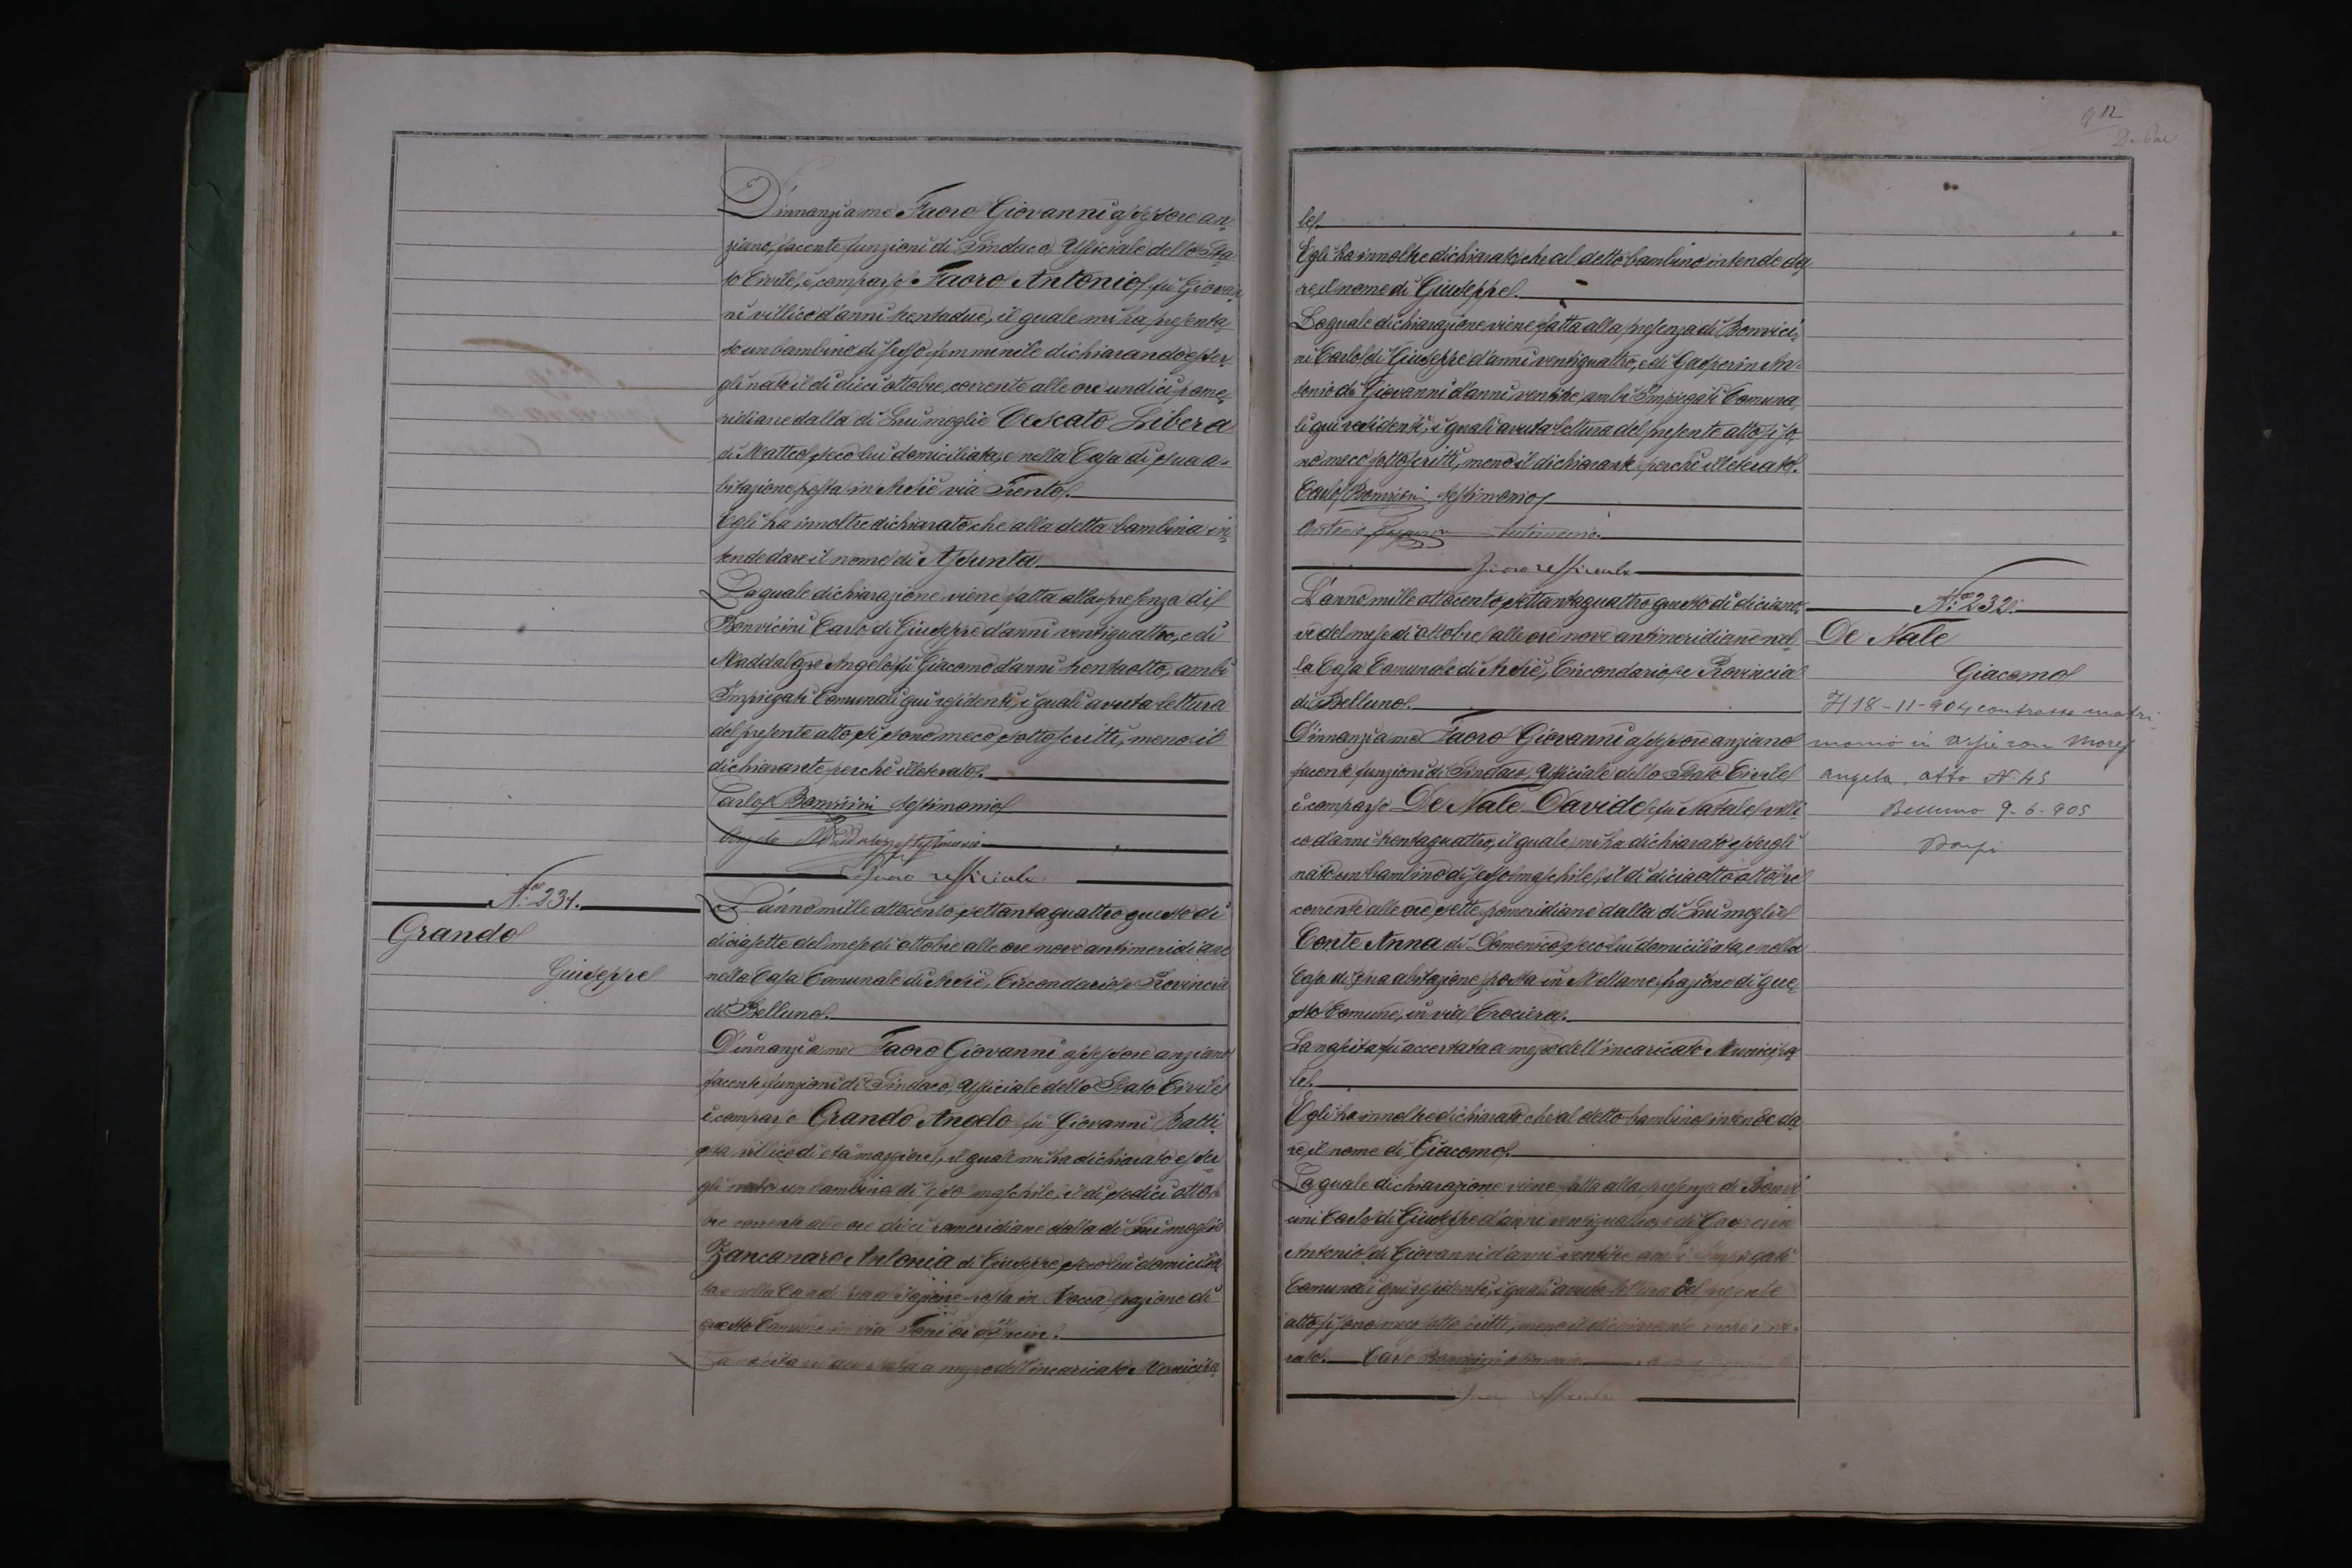 D'innanzi a me Faoro Giovanni assessore an-
ziano, facente funzioni di Sindaco, Ufficiale dello Sta-
to Civile, è comparso Faoro Antonio fu Giovan-
ni villico d'anni trentadue, il quale mi ha presenta-
to un bambino di sesso femminile dichiarando esser-
gli nato il dì dieci ottobre corrente alle ore undici pome-
ridiane dalla di Lui moglie Cescato Libera
di Matteo, seco lui domiciliata, e nella Casa di sua a-
bitazione posta in Arsiè via Trento.
Egli ha innoltre dichiarato che alla detta bambina in-
tende dare il nome di Assunta
La quale dichiarazione viene fatta alla presenza di
Bonvicini Carlo di Giuseppe d'anni ventiquattro, e di
Maddalozzo Angelo fu Giacomo d'anni trentaotto, ambi
Impiegati Comunali qui residenti, i quali avuta lettura
del presente atto, si sono meco sottoscritti, meno il
dichiarante perchè illeterato.
Carlo Bonvicini testimonio
Angelo Maddalozzo testimonio
Faoro ufficiale
N.º 231.
Grando
Giuseppe
L'anno mille ottocento settantaquattro questo dì
diciasette del mese di ottobre alle ore nove antimeridiane
nella Casa Comunale di Arsiè, Circondario e Provincia
di Belluno.
D'innanzi a me Faoro Giovanni assessore anziano
facente funzioni di Sindaco, Ufficiale dello Stato Civile
è comparso Grando Angelo fu Giovanni Batti-
sta villico di età maggiore, il quale mi ha dichiarato esser-
gli nato un bambino di sesso maschile, il dì sedici otto-
bre corrente alle ore dieci pomeridiane dalla di Lui moglie
Zancanaro Antonia di Giuseppe, seco lui domicilia-
ta e nella Casa di sua abitazione posta in Rocca frazione di
questo Comune in via
La nascita fu accertata a mezzo dell'incaricato Municipa-
912
le.
Egli ha innoltre dichiarato che al detto bambino intende da-
re il nome di Giuseppe.
La quale dichiarazione viene fatta alla presenza di Bonvici-
ni Carlo di Giuseppe d'anni ventiquattro, e di Gasperin An-
tonio di Giovanni d'anni ventitre, ambi Impiegati Comuna-
li qui residenti, i quali avuta lettura del presente atto si so-
no meco sottoscritti, meno il dichiarante perchè illeterato.
Carlo Bonvicini testimonio
Antonio Gasperin testimonio.
Faoro ufficiale
L'anno mille ottocento settantaquattro questo dì dicianno-
ve del mese di ottobre alle ore nove antimeridiane nel-
la Casa Comunale di Arsiè, Circondario e Provincia
di Belluno.
D'innanzi a me Faoro Giovanni assessore anziano
facente funzioni di Sindaco, Ufficiale dello Stato Civile
è comparso De Nale Davide fu Natale villi-
co d'anni trentaquattro, il quale mi ha dichiarato essergli
nato un bambino di sesso maschile, il dì diciaotto ottobre
corrente alle ore sette pomeridiane dalla di Lui moglie
Conte Anna di Domenico, seco lui domiciliata, e nella
Casa di sua abitazione posta in Mellame, frazione di que-
sto Comune, in via Crociera.
La nascita fu accertata a mezzo dell'incaricato Municipa-
le.
Egli ha innoltre dichiarato che al detto bambino intende da-
re il nome di Giacomo.
La quale dichiarazione viene fatta alla presenza di Bonvi-
cini Carlo di Giuseppe d'anni ventiquattro, e di Gasperin
Antonio di Giovanni d'anni ventitre ambi Impiegati
Comunali qui residenti, i quali avuta lettura del presente
atto si sono meco sottoscritti, meno il dichiarante perchè illete-
rato. Carlo Bonvicini testimonio
Faoro ufficiale
N.º 232.
De Nale
Giacomo
Il 18-11-904 contrasse matri-
monio in Arsiè con
Angela, atto N 45
Belluno 9-6-905